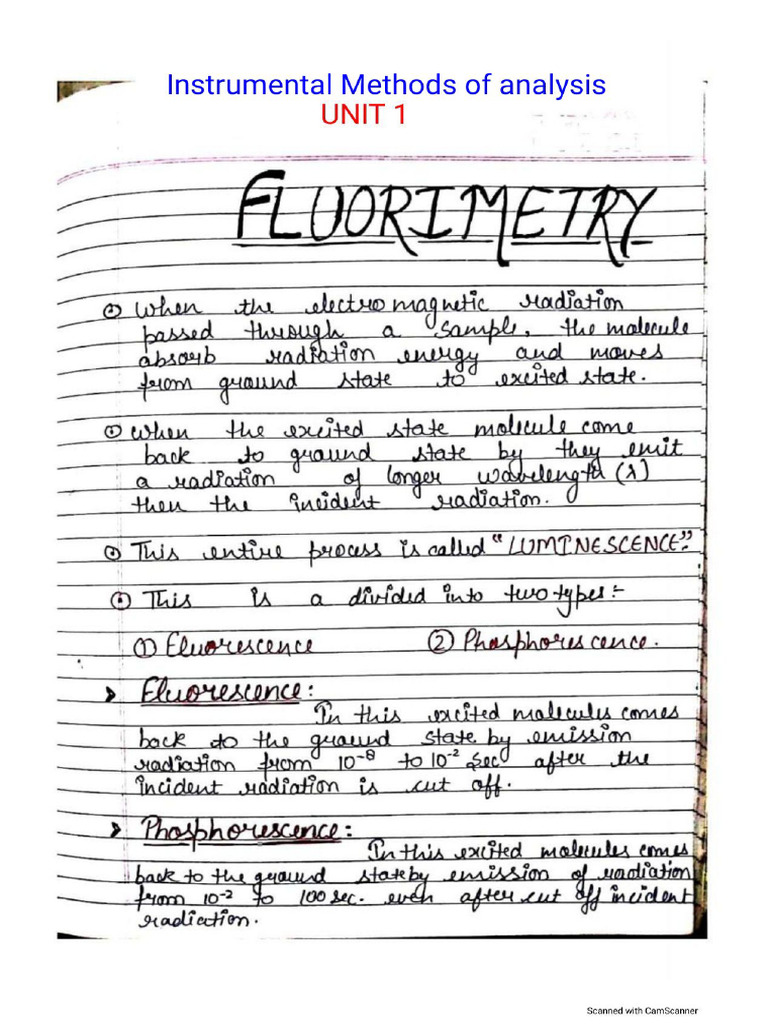 Instrumental Methods of analysis
UNIT 1
FLUORIMETRY
When the electro magnetic radiation
passed through a sample, the molecule
absorb radiation energy and moves
from ground state to excited state.
When the excited state molecule come
back to ground state by they emit
a radiation of longer wavelength (λ)
then the incident radiation.
This entire process is called "LUMINESCENCE".
This is a divided into two types:-
① Fluorescence ② Phosphorescence.
> Fluorescence:
In this excited molecules comes
back to the ground state by emission
radiation from 10⁻⁸ to 10⁻² sec after the
incident radiation is cut off.
> Phosphorescence:
In this excited molecules comes
back to the ground state by emission of radiation
from 10⁻² to 100 sec. even after cut off incident
radiation.
Scanned with CamScanner